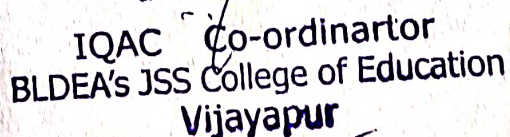 IQAC Co-ordinartor
BLDEA's JSS College of Education
Vijayapur